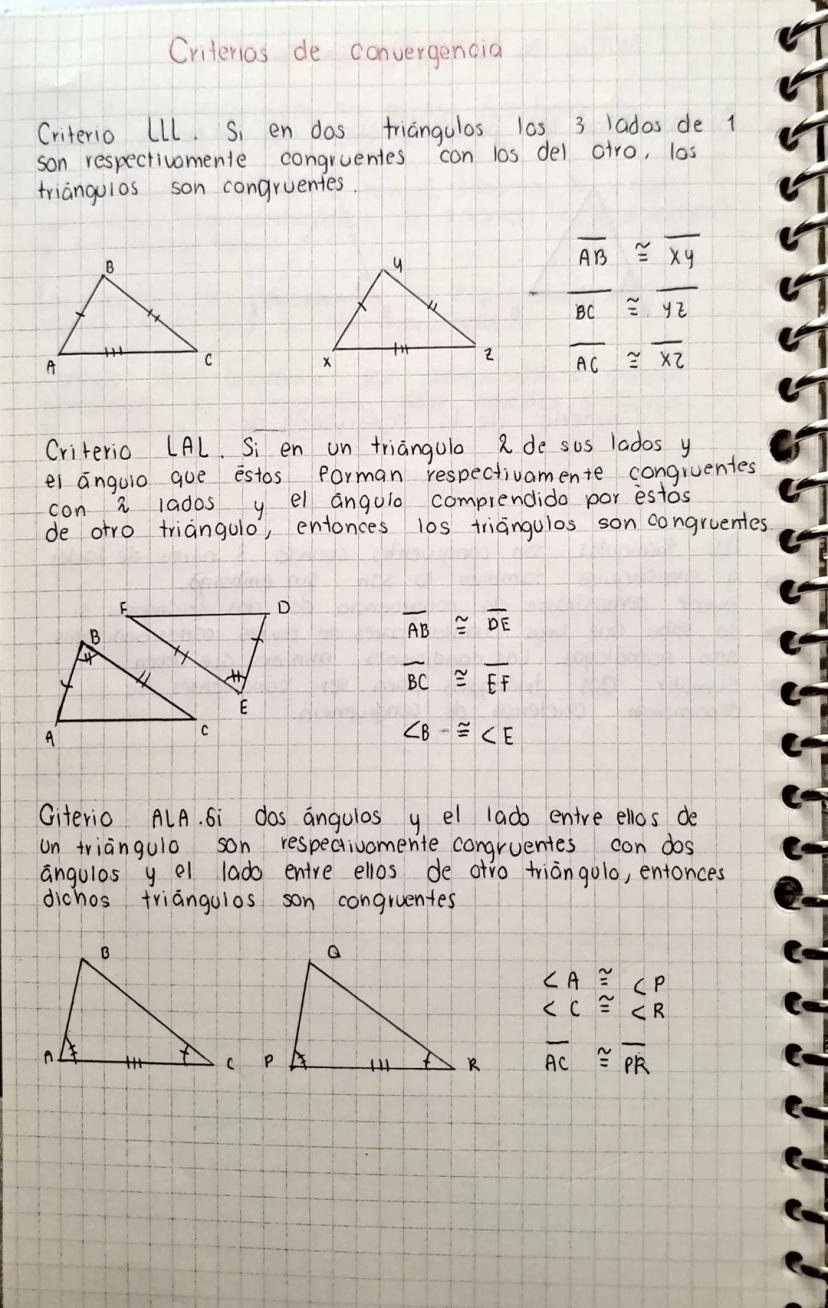 Criterios de convergencia
Criterio LLL. Si en dos triángulos los 3 lados de 1
son respectivamente congruentes con los del otro, los
triángulos son congruentes.
B
A
C
Y
X
Z
AB ≅ XY
BC ≅ YZ
AC ≅ XZ
Criterio LAL. Si en un triángulo 2 de sus lados y
el ángulo que éstos forman respectivamente congruentes
con 2 lados y el ángulo comprendido por éstos
de otro triángulo, entonces los triángulos son congruentes
F
D
B
E
A
C
AB ≅ DE
BC ≅ EF
∠B ≅ ∠E
Criterio ALA. Si dos ángulos y el lado entre ellos de
un triángulo son respectivamente congruentes con dos
ángulos y el lado entre ellos de otro triángulo, entonces
dichos triángulos son congruentes
B
A
C
Q
P
R
∠A ≅ ∠P
∠C ≅ ∠R
AC ≅ PR